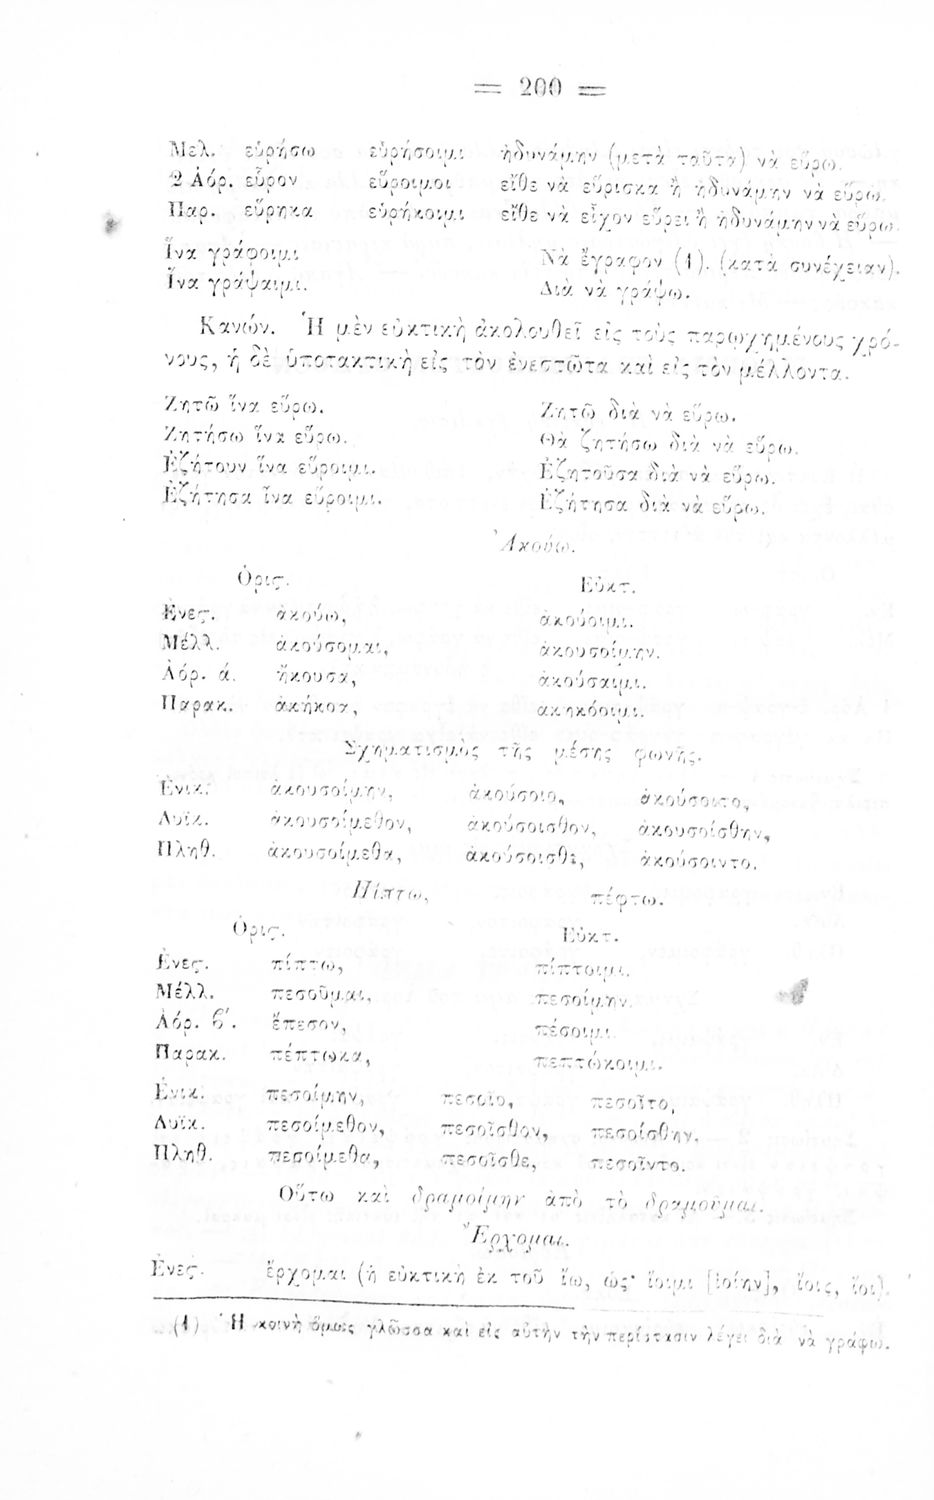 = 200 =
Μελ. εὑρήσω εὑρήσοιμι ἠδυνάμην (μετὰ ταῦτα) νὰ εὕρω.
2 Ἀόρ. εὗρον εὕροιμοι εἴθε νὰ εὕρισκα ἢ ἠδυνάμην νὰ εὕρω.
Παρ. εὕρηκα εὑρήκοιμι εἴθε νὰ εἶχον εὕρει ἢ ἠδυνάμην νὰ εὕρω.
Ἵνα γράφοιμι Νὰ ἔγραφον (1). (κατὰ συνέχειαν).
Ἵνα γράψαιμι. Διὰ νὰ γράψω.
Κανών. Ἡ μὲν εὐκτικὴ ἀκολουθεῖ εἰς τοὺς παρῳχημένους χρό-
νους, ἡ δὲ ὑποτακτικὴ εἰς τὸν ἐνεστῶτα καὶ εἰς τὸν μέλλοντα.
Ζητῶ ἵνα εὕρω. Ζητῶ διὰ νὰ εὕρω.
Ζητήσω ἵνα εὕρω. Θὰ ζητήσω διὰ νὰ εὕρω.
Ἐζήτουν ἵνα εὕροιμι. Ἐζητοῦσα διὰ νὰ εὕρω.
Ἐζήτησα ἵνα εὕροιμι. Ἐζήτησα διὰ νὰ εὕρω.
Ἀκούω.
Ὁρις. Εὐκτ.
Ἐνες. ἀκούω, ἀκούοιμι.
Μέλλ. ἀκούσομαι, ἀκουσοίμην.
Ἀόρ. ά. ἤκουσα, ἀκούσαιμι.
Παρακ. ἀκήκοα, ἀκηκόοιμι.
Σχηματισμὸς τῆς μέσης φωνῆς.
Ἑνικ. ἀκουσοίμην, ἀκούσοιο, ἀκούσοιτο,
Δυϊκ. ἀκουσοίμεθον, ἀκούσοισθον, ἀκουσοίσθην,
Πληθ. ἀκουσοίμεθα, ἀκούσοισθε, ἀκούσοιντο.
Πίπτω, πέφτω.
Ὁρις. Εὐκτ.
Ἐνες. πίπτω, πίπτοιμι.
Μέλλ. πεσοῦμαι, πεσοίμην.
Ἀόρ. β΄. ἔπεσον, πέσοιμι
Παρακ. πέπτωκα, πεπτώκοιμι.
Ἑνικ. πεσοίμην, πεσοῖο, πεσοῖτο,
Δυϊκ. πεσοίμεθον, πεσοῖσθον, πεσοίσθην,
Πληθ. πεσοίμεθα, πεσοῖσθε, πεσοῖντο.
Οὕτω καὶ δραμοίμην ἀπὸ τὸ δραμοῦμαι.
Ἔρχομαι.
Ἐνες. ἔρχομαι (ἡ εὐκτικὴ ἐκ τοῦ ἴω, ὡς· ἴοιμι [ἰοίην], ἴοις, ἴοι).
(1) Ἡ κοινὴ ὅμως γλῶσσα καὶ εἰς αὐτὴν τὴν περίστασιν λέγει διὰ νὰ γράφω.